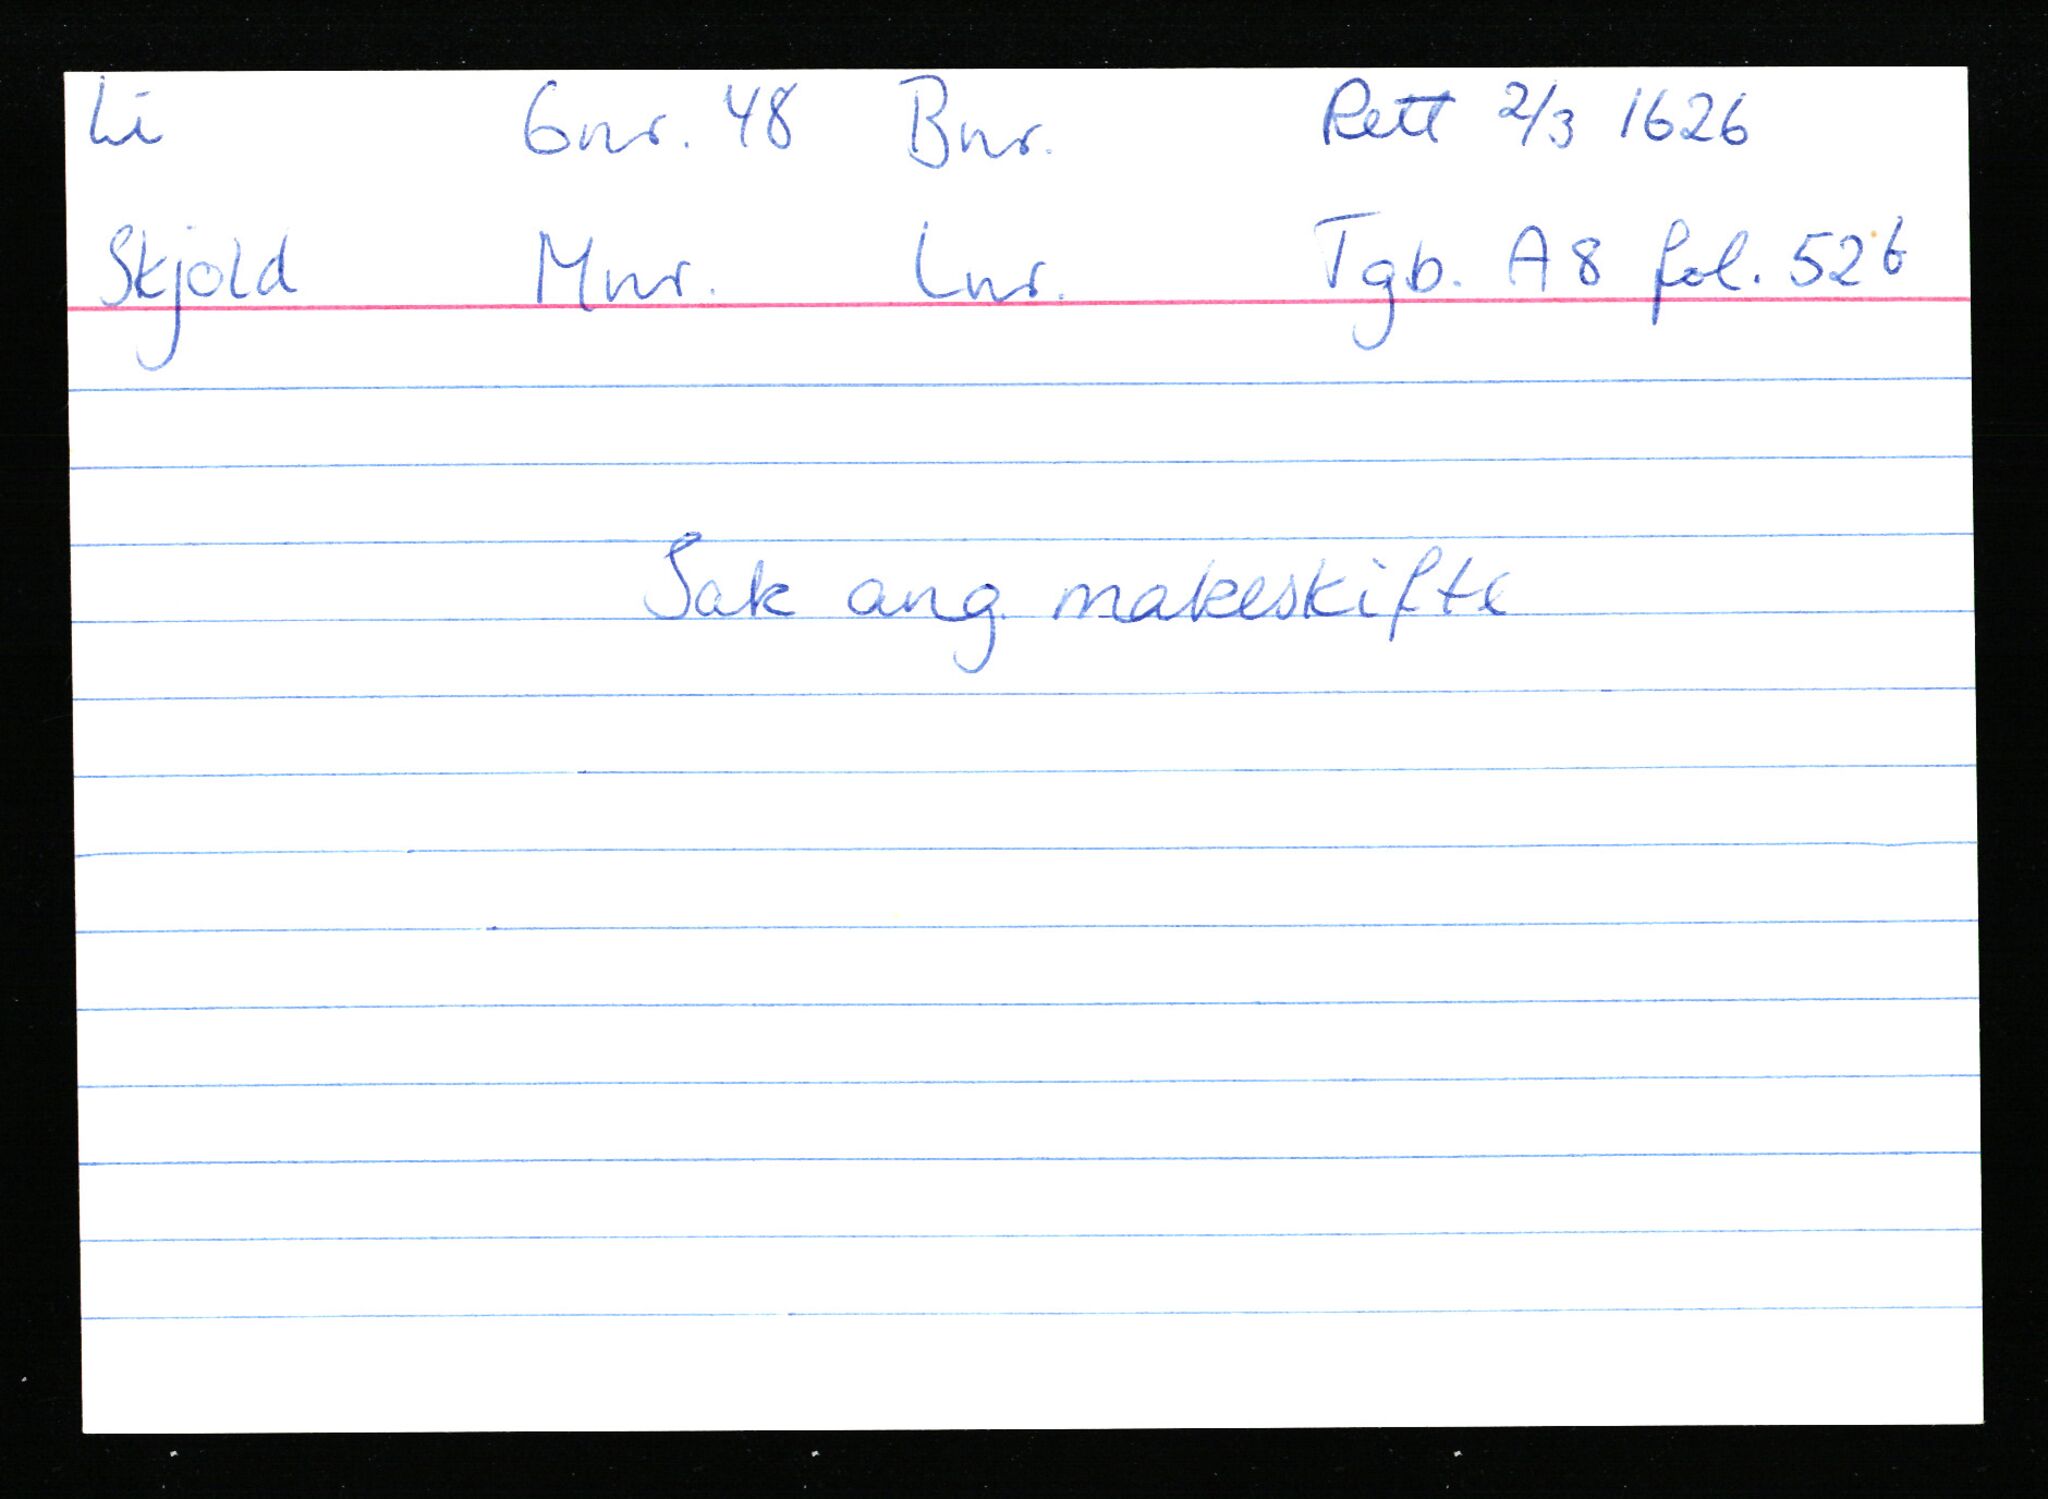 Li Gnr. 48 Bnr. Rett 2/3 1626
Skjold Mnr. Lnr. Tgb. A 8 fol. 52b
Sak ang. makeskifte